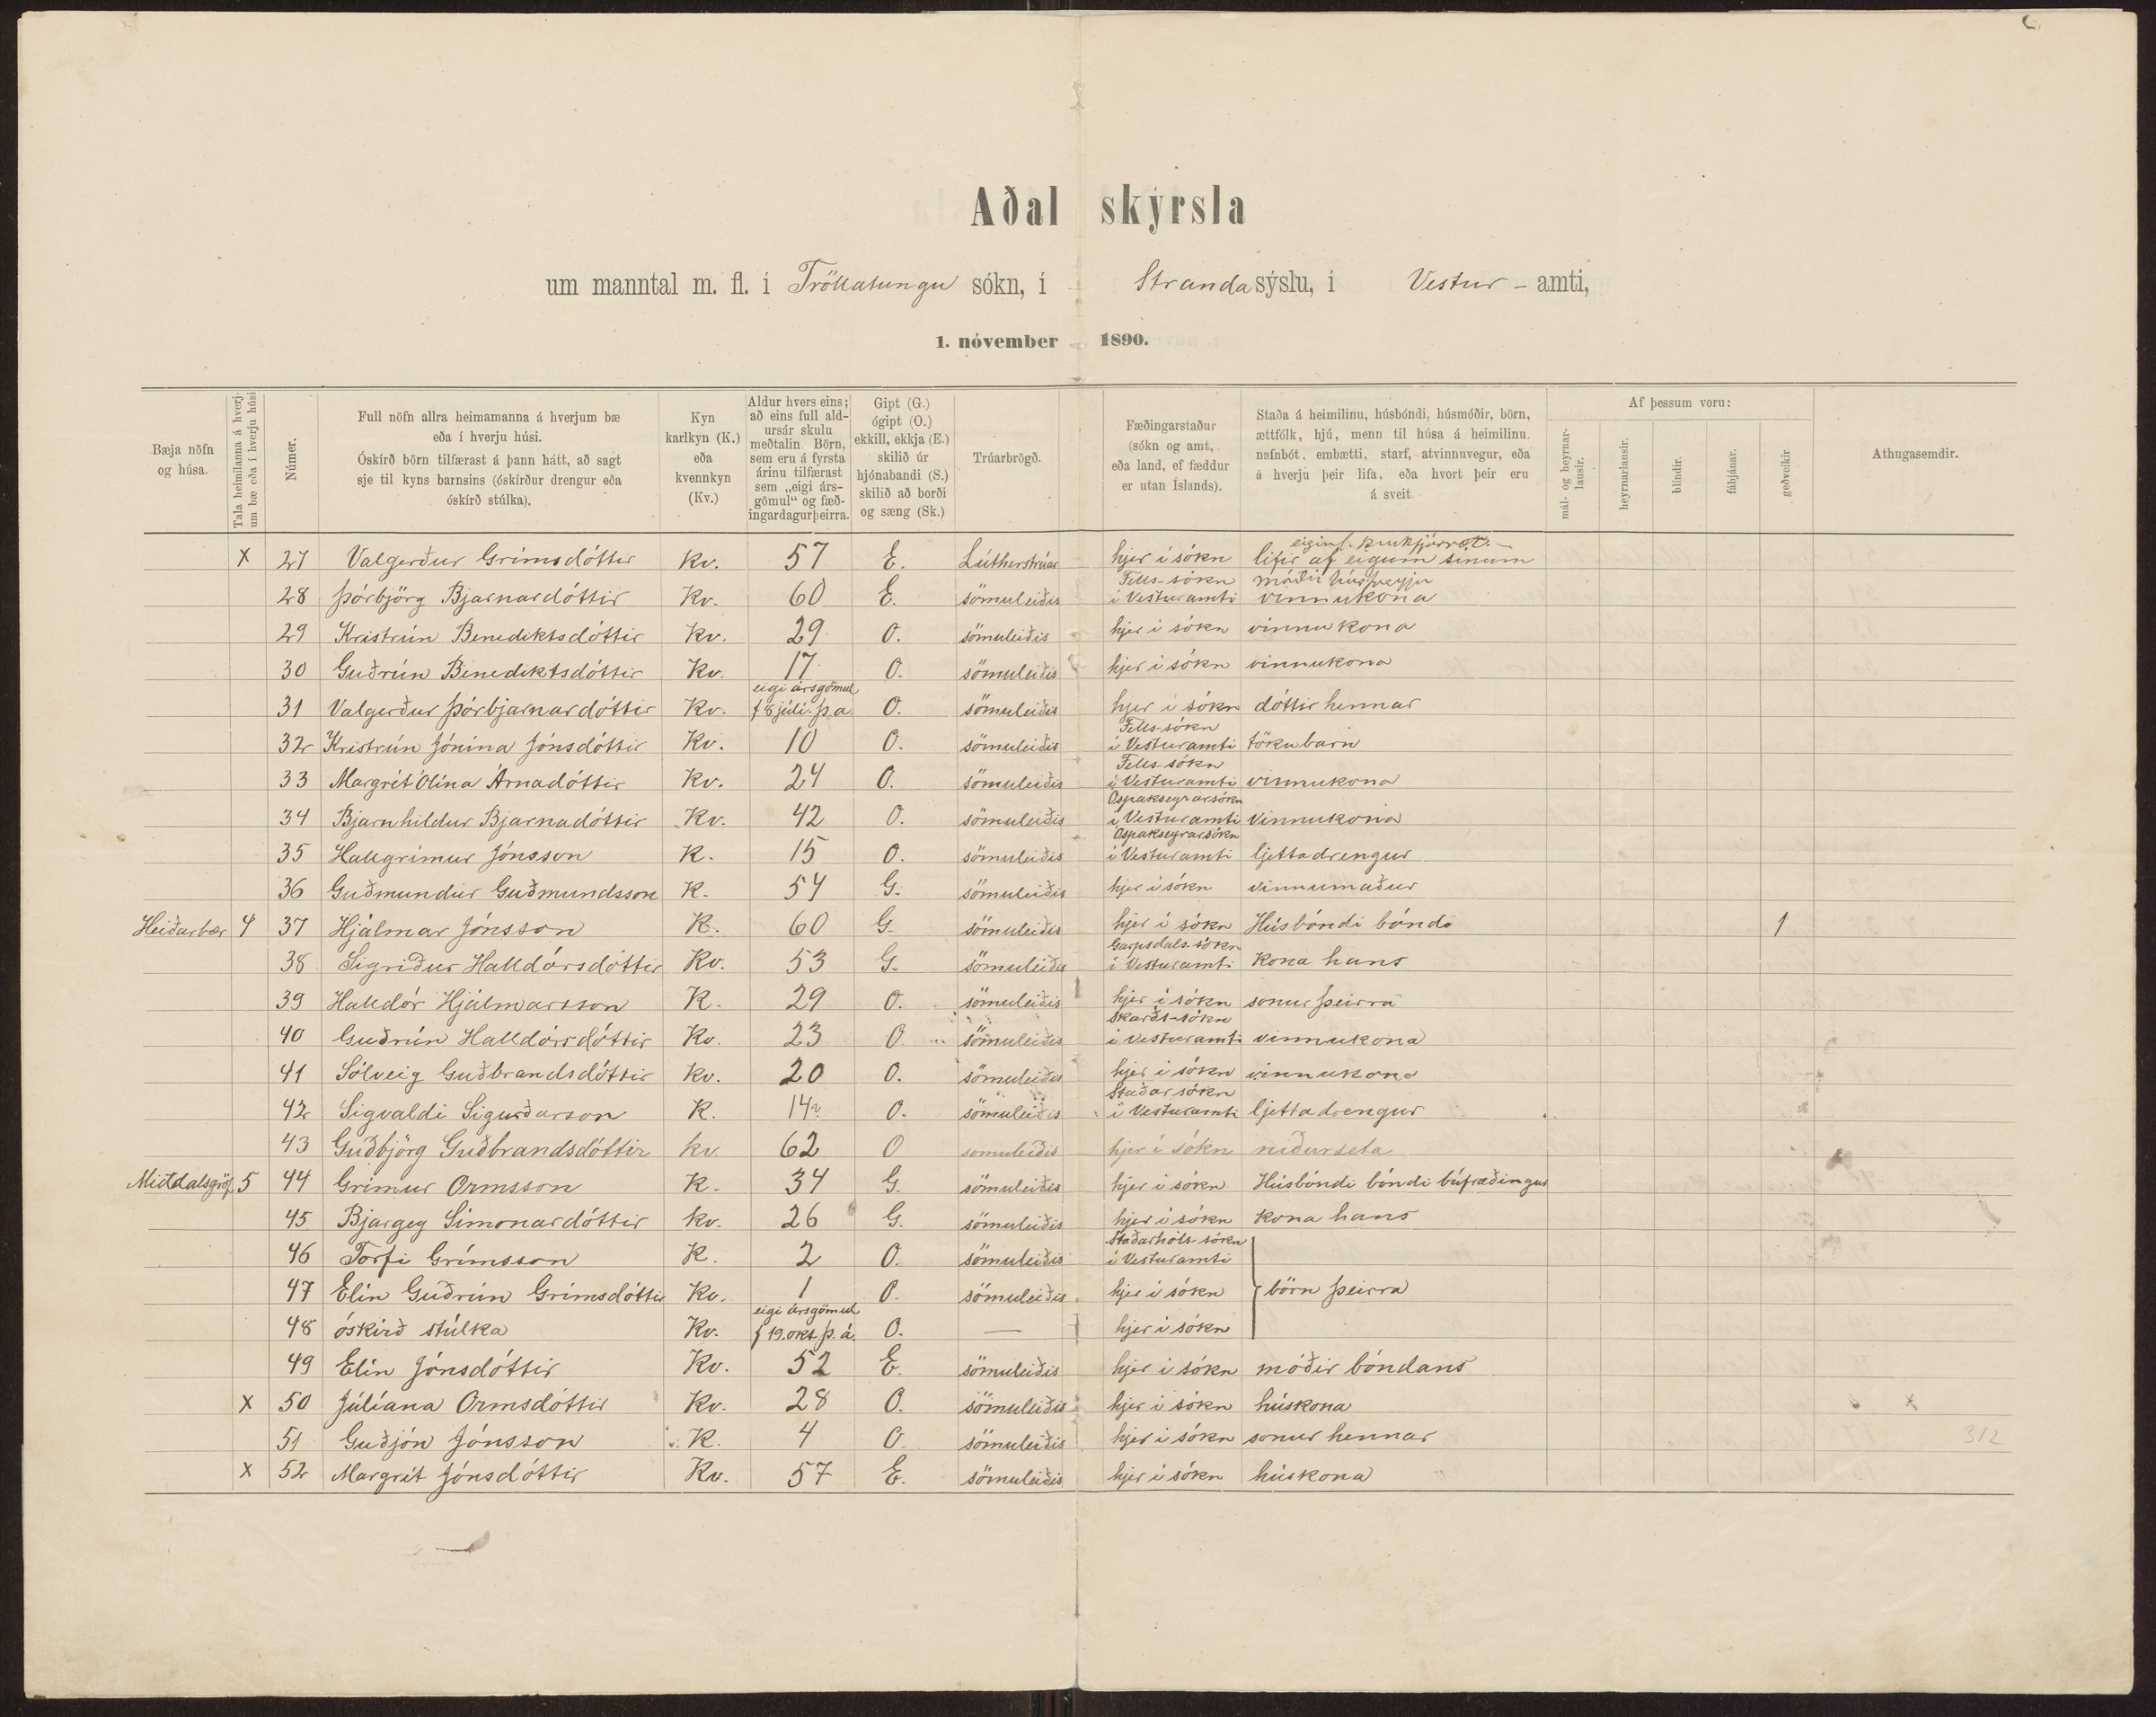 Aðal skýrsla
um manntal m. fl. í Tröllatungu sókn, í Stranda sýslu, í Vestur - amti,
1. nóvember 1890.
Bæja nöfn og húsa.
Tala heimilanna á hverjum bæ eða í hverju húsi
Númer.
Full nöfn allra heimamanna á hverjum bæ
eða í hverju húsi.
Óskírð börn tilfærast á þann hátt, að sagt
sje til kyns barnsins (óskírður drengur eða
óskírð stúlka).
Kyn
karlkyn (K.)
eða
kvennkyn
(Kv.)
Aldur hvers eins;
að eins full ald-
ursár skulu
meðtalin. Börn,
sem eru á fyrsta
árinu tilfærast
sem „eigi árs-
gömul“ og fæð-
ingardagur þeirra.
Gipt (G.)
ógipt (O.)
ekkill, ekkja (E.)
skilið úr
hjónabandi (S.)
skilið að borði
og sæng (Sk.)
Trúarbrögð.
Fæðingarstaður
(sókn og amt,
eða land, ef fæddur
er utan Íslands).
Staða á heimilinu, húsbóndi, húsmóðir, börn,
ættfólk, hjú, menn til húsa á heimilinu,
nafnbót, embætti, starf, atvinnuvegur, eða
á hverju þeir lifa, eða hvort þeir eru
á sveit
Af þessum voru:
mál- og heyrnar-
lausir.
heyrnarlausir.
blindir.
fábjánar.
geðveikir
Athugasemdir.
x 27 Valgerður Grímsdóttir Kv. 57 E. Lútherstrúar hjer í sókn lifir af eigum sínum
28 Þórbjörg Bjarnardóttir Kv. 60 E. sömuleiðis Fells-sókn í Vesturamti móðir húsfreyju vinnukona
29 Kristrún Benediktsdóttir Kv. 29 O. sömuleiðis hjer í sókn vinnukona
30 Guðrún Benediktsdóttir Kv. 17 O. sömuleiðis hjer í sókn vinnukona
31 Valgerður Þórbjarnardóttir Kv. eigi ársgömul f 8 júlí. þ. a. O. sömuleiðis hjer í sókn dóttir hennar
32 Kristrún Jónína Jónsdóttir Kv. 10 O. sömuleiðis Fells-sókn í Vesturamti tökubarn
33 Margrét Ólína Árnadóttir Kv. 24 O. sömuleiðis Fells-sókn í Vesturamti vinnukona
34 Bjarnhildur Bjarnadóttir Kv. 42 O. sömuleiðis Ospakseyrarsókn í Vesturamti vinnukona
35 Hallgrímur Jónsson K. 15 O. sömuleiðis Ospakseyrarsókn í Vesturamti ljettadrengur
36 Guðmundur Guðmundsson K. 54 G. sömuleiðis hjer í sókn vinnumaður
Heiðarbær 4 37 Hjálmar Jónsson K. 60 G. sömuleiðis hjer í sókn Húsbóndi bóndi 1
38 Sigríður Halldórsdóttir Kv. 53 G. sömuleiðis Garpsdals-sókn í Vesturamti kona hans
39 Halldór Hjálmarsson K. 29 O. sömuleiðis hjer í sókn sonur þeirra
40 Guðrún Halldórsdóttir Kv. 23 O. sömuleiðis Skarðs-sókn í Vesturamti vinnukona
41 Sólveig Guðbrandsdóttir Kv. 20 O. sömuleiðis hjer í sókn vinnukona
42 Sigvaldi Sigurðarson K. 14 O. sömuleiðis Staðarsókn í Vesturamti ljettadrengur
43 Guðbjörg Guðbrandsdóttir kv 62 O somuleiðis hjer í sókn niðurseta
Miðdalsgröf 5 44 Grímur Ormsson K. 34 G. sömuleiðis hjer í sókn Húsbóndi bóndi búfræðingur
45 Bjargey Símonardóttir kv. 26 G. sömuleiðis hjer í sókn kona hans
46 Torfi Grímsson K. 2 O. sömuleiðis Staðarhóls-sókn í Vesturamti
47 Elín Guðrún Grímsdóttir Kv. 1 O. sömuleiðis hjer í sókn börn þeirra
48 óskírð stúlka Kv. eigi ársgömul f 19. okt. þ. á. O. — hjer í sókn
49 Elín Jónsdóttir Kv. 52 E. sömuleiðis hjer í sókn móðir bóndans
x 50 Júlíana Ormsdóttir Kv. 28 O. sömuleiðis hjer í sókn húskona x
51 Guðjón Jónsson K. 4 O. sömuleiðis hjer í sókn sonur hennar 312
x 52 Margrét Jónsdóttir Kv. 57 E. sömuleiðis hjer í sókn húskona